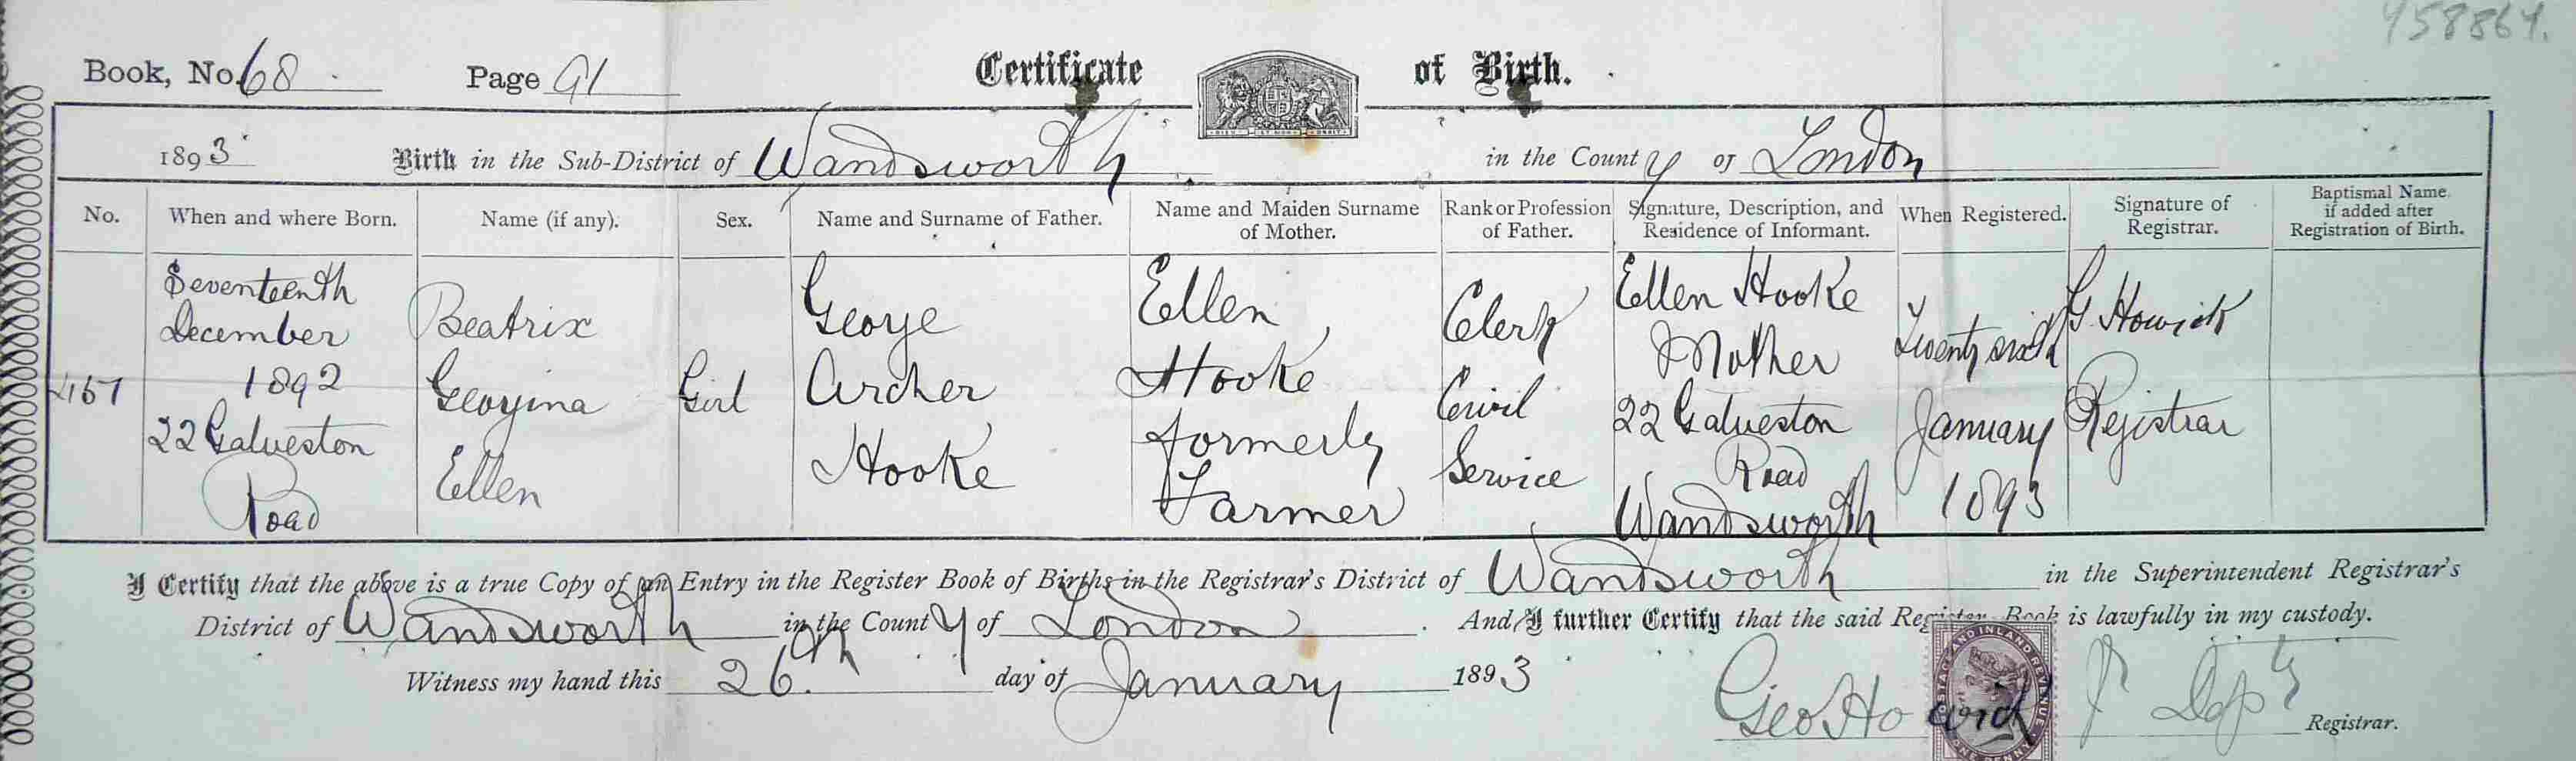 458864.
Book, No. 68 Page 91 Certificate of Birth.
DIEU ET MON DROIT
1893 Birth in the Sub-District of Wandsworth in the County of London
No. When and where Born. Name (if any). Sex. Name and Surname of Father. Name and Maiden Surname of Mother. Rank or Profession of Father. Signature, Description, and Residence of Informant. When Registered. Signature of Registrar. Baptismal Name if added after Registration of Birth.
457
Seventeenth
December
1892
22 Galveston
Road
Beatrix
Georgina
Ellen
Girl
George
Archer
Hooke
Ellen
Hooke
formerly
Farmer
Clerk
Civil
Service
Ellen Hooke
Mother
22 Galveston
Road
Wandsworth
Twenty sixth
January
1893
G. Howick
Registrar
I Certify that the above is a true Copy of an Entry in the Register Book of Births in the Registrar's District of Wandsworth in the Superintendent Registrar's
District of Wandsworth in the County of London. And I further Certify that the said Register Book is lawfully in my custody.
Witness my hand this 26th day of January 1893
Geo Howick Depty Registrar.
POSTAGE AND INLAND REVENUE
ONE PENNY